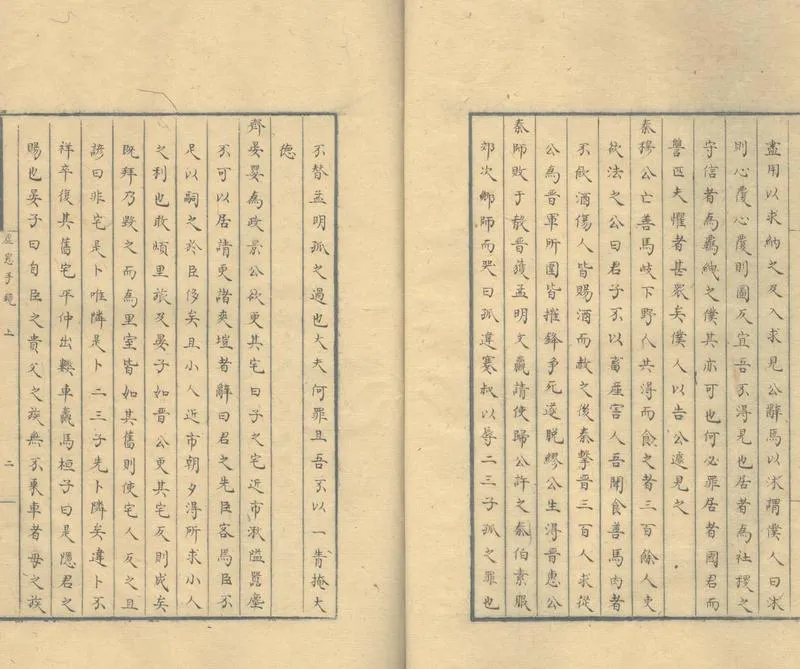 盡用以求納之及入求見公辭焉以沐謂僕人曰沐
則心覆心覆則圖反宜吾不得見也居者為社稷之
守行者為羈絏之僕其亦可也何必罪居者國君而
讐匹夫懼者甚衆矣僕人以告公遽見之
秦穆公亡善馬岐下野人共得而食之者三百餘人吏
欲法之公曰君子不以畜產害人吾聞食善馬肉者
不飲酒傷人皆賜酒而赦之後秦擊晉三百人求從
公為晉軍所圍皆摧鋒爭死遂脫繆公生得晉惠公
秦師敗于殽晉獲孟明文嬴請使歸公許之秦伯素服
郊次鄉師而哭曰孤違蹇叔以辱二三子孤之罪也
不替孟明孤之過也大夫何罪且吾不以一眚掩大
德
齊晏嬰為政景公欲更其宅曰子之宅近市湫隘囂塵
不可以居請更諸爽塏者辭曰君之先臣容焉臣不
足以嗣之於臣侈矣且小人近市朝夕得所求小人
之利也敢煩里旅及晏子如晉公更其宅反則成矣
既拜乃毀之而為里室皆如其舊則使宅人反之且
諺曰非宅是卜唯隣是卜二三子先卜隣矣違卜不
祥卒復其舊宅平仲出轏車羸馬桓子曰是隱君之
賜也晏子曰自臣之貴父之族無不乘車者母之族
虛窓手鏡 上 二